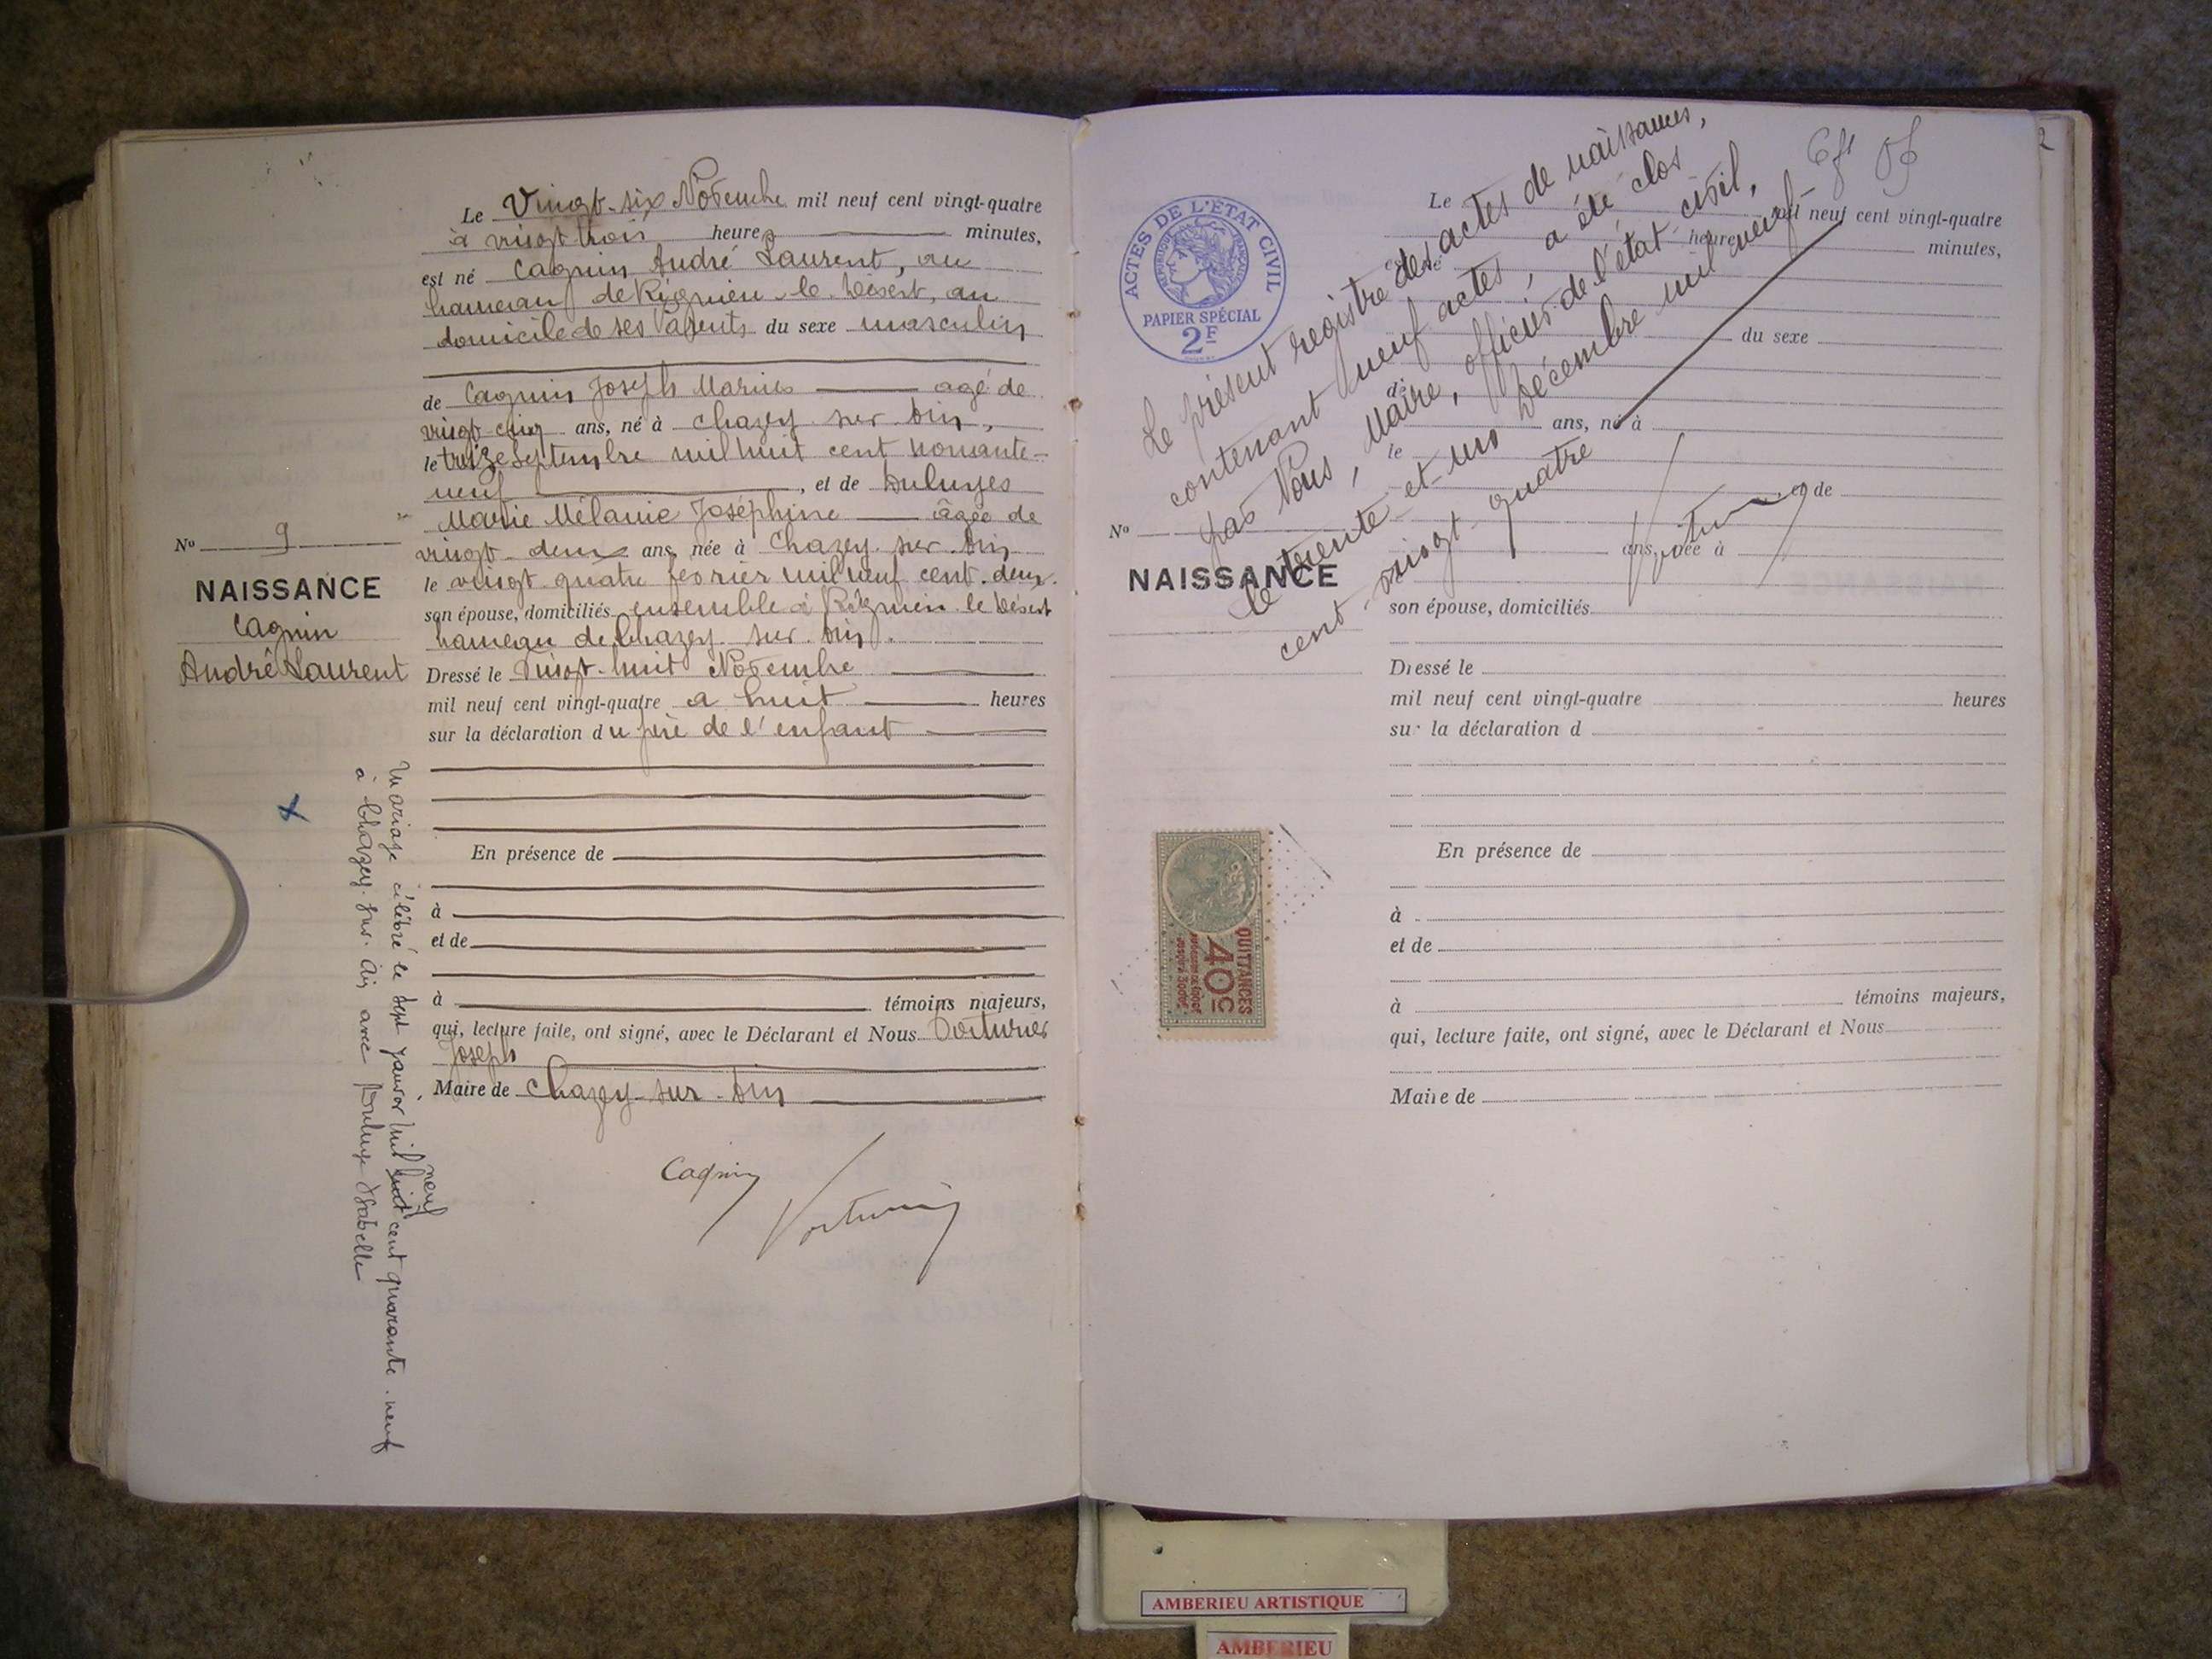 Le Vingt-six Novembre mil neuf cent vingt-quatre
à vingt trois heures minutes,
est né Cagnin André Laurent, au
hameau de Rignieu-le-Désert, au
domicile de ses parents du sexe masculin
de Cagnin Joseph Marius agé de
vingt cinq ans, né à Chazey-sur-Ain,
le treize Septembre mil huit cent nonante-
neuf, et de Duluyes
Marie Mélanie Joséphine agée de
vingt-deux ans, née à Chazey-sur-Ain
le vingt quatre février mil neuf cent deux.
son épouse, domiciliés ensemble à Rignieu le Désert
hameau de Chazey-sur-Ain.
Dressé le Vingt-huit Novembre
mil neuf cent vingt-quatre à huit heures
sur la déclaration du père de l'enfant
En présence de
à
et de
à témoins majeurs,
qui, lecture faite, ont signé, avec le Déclarant et Nous Voiturier
Joseph
Maire de Chazey-sur-Ain
Cagnin
Voiturier
No 9
NAISSANCE
Cagnin
André Laurent
Mariage célébré le sept janvier mil huit neuf cent quarante-neuf
à Chazey-sur-Ain avec Isabelle
ACTES DE L'ÉTAT CIVIL
RÉPUBLIQUE FRANÇAISE
PAPIER SPÉCIAL
2F
Le présent registre des actes de naissances,
contenant neuf actes, a été clos
par Nous, Maire, officier de l'état-civil,
le trente-et-un Décembre mil neuf-
cent-vingt-quatre
Voiturier
2
Le mil neuf cent vingt-quatre
heure minutes,
du sexe
de
ans, né à
le
et de
ans, née à
No
NAISSANCE
son épouse, domiciliés
Dressé le
mil neuf cent vingt-quatre heures
sur la déclaration d
En présence de
à
et de
à témoins majeurs,
qui, lecture faite, ont signé, avec le Déclarant et Nous
Maire de
QUITTANCES
40c
AMBERIEU ARTISTIQUE
AMBERIEU